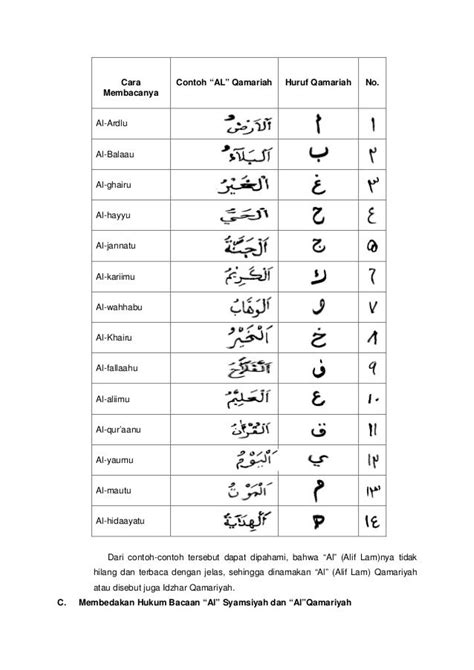 Cara Membacanya Contoh “AL” Qamariah Huruf Qamariah No.
Al-Ardlu اَلْاَرْضُ ا ١
Al-Balaau اَلْبَلَآءُ ب ٢
Al-ghairu اَلْغَيْرُ غ ٣
Al-hayyu اَلْحَيُّ ح ٤
Al-jannatu اَلْجَنَّةُ ج ٥
Al-kariimu اَلْكَرِيْمُ ك ٦
Al-wahhabu اَلْوَهَّابُ و ٧
Al-Khairu اَلْخَيْرُ خ ٨
Al-fallaahu اَلْفَلَّاحُ ف ٩
Al-aliimu اَلْعَلِيْمُ ع ١٠
Al-qur’aanu اَلْقُرْآنُ ق ١١
Al-yaumu اَلْيَوْمُ ي ١٢
Al-mautu اَلْمَوْتُ م ١٣
Al-hidaayatu اَلْهِدَايَةُ ه ١٤
Dari contoh-contoh tersebut dapat dipahami, bahwa “Al” (Alif Lam)nya tidak
hilang dan terbaca dengan jelas, sehingga dinamakan “Al” (Alif Lam) Qamariyah
atau disebut juga Idzhar Qamariyah.
C. Membedakan Hukum Bacaan “Al” Syamsiyah dan “Al”Qamariyah